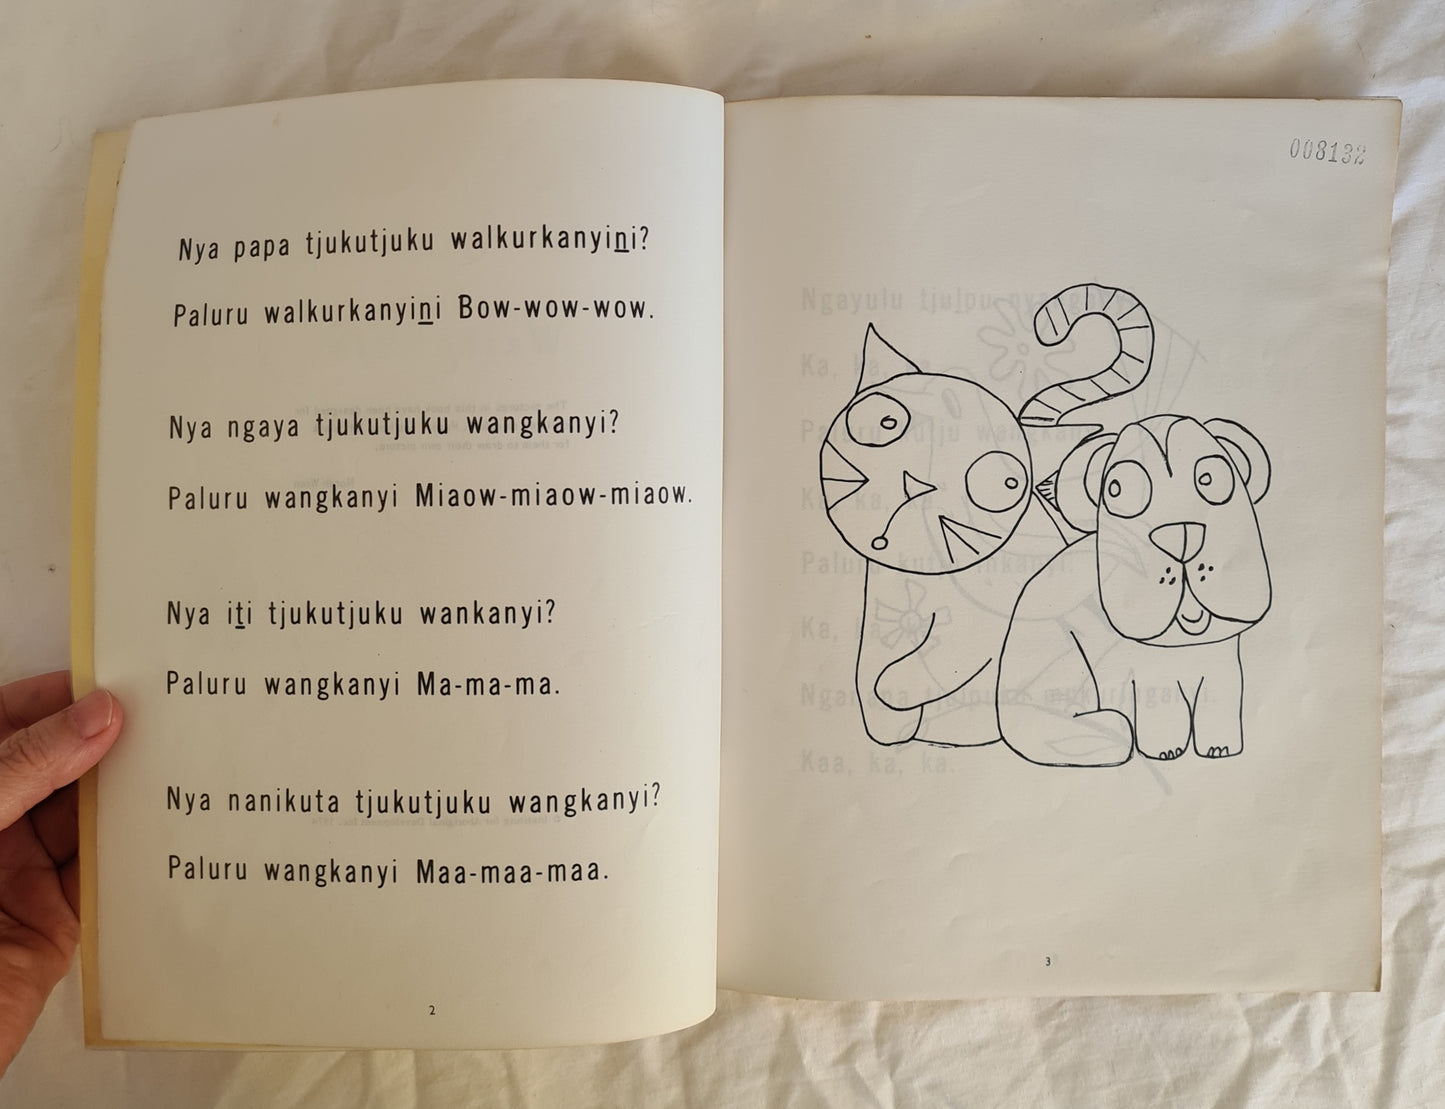 Nya papa tjukutjuku walkurkanyiṉi?
Paluru walkurkanyiṉi Bow-wow-wow.
Nya ngaya tjukutjuku wangkanyi?
Paluru wangkanyi Miaow-miaow-miaow.
Nya iṯi tjukutjuku wankanyi?
Paluru wangkanyi Ma-ma-ma.
Nya nanikuta tjukutjuku wangkanyi?
Paluru wangkanyi Maa-maa-maa.
2
008132
3